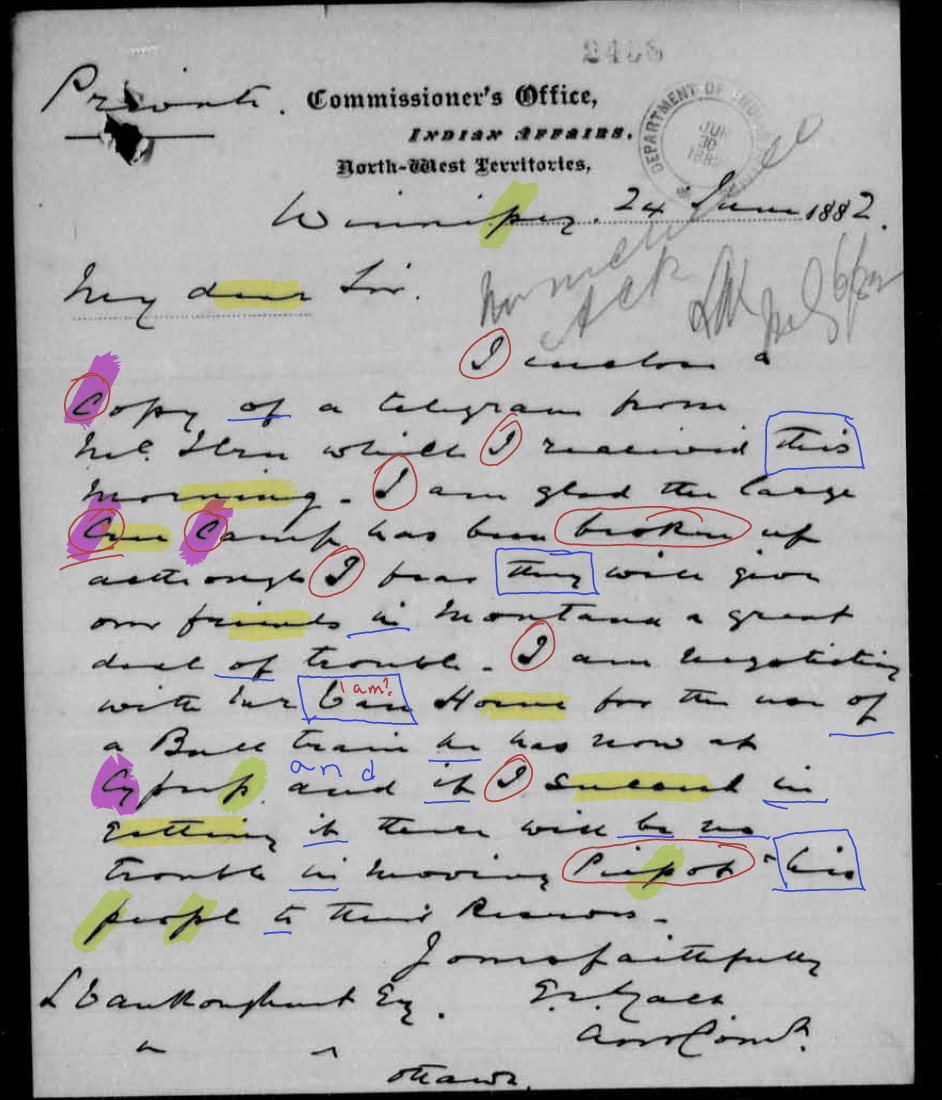 2468
Private.
Commissioner's Office,
INDIAN AFFAIRS.
North-West Territories,
DEPARTMENT OF INDIAN
JUN
30
1882
Winnipeg. 24 June 1882.
My dear Sir.
Ack
I enclose a
Copy of a telegram from
Mr. which I received this
morning. I am glad the large
Cree Camp has been broken up
although I fear they will give
our friends in Montana a great
deal of trouble. I am negotiating
with Mr 1 am? for the use of
a Bull train he has now at
and
Cypress and if I succeed in
getting it there will be no
trouble in moving Piepot & his
people to their Reserves.
Yours faithfully
L Vankoughnet Esq.
Asst Comr.
" "
Ottawa.